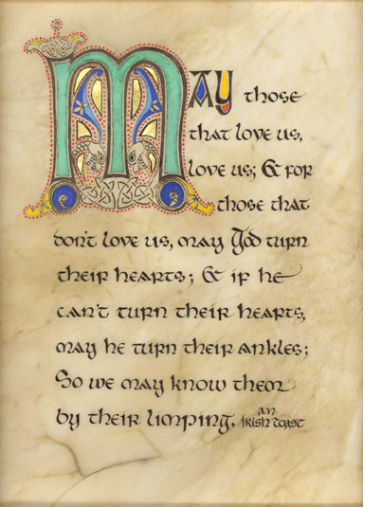 May those
that love us,
love us; & for
those that
don't love us, may God turn
their hearts; & if he
can't turn their hearts,
may he turn their ankles;
So we may know them
by their limping. an
Irish toast